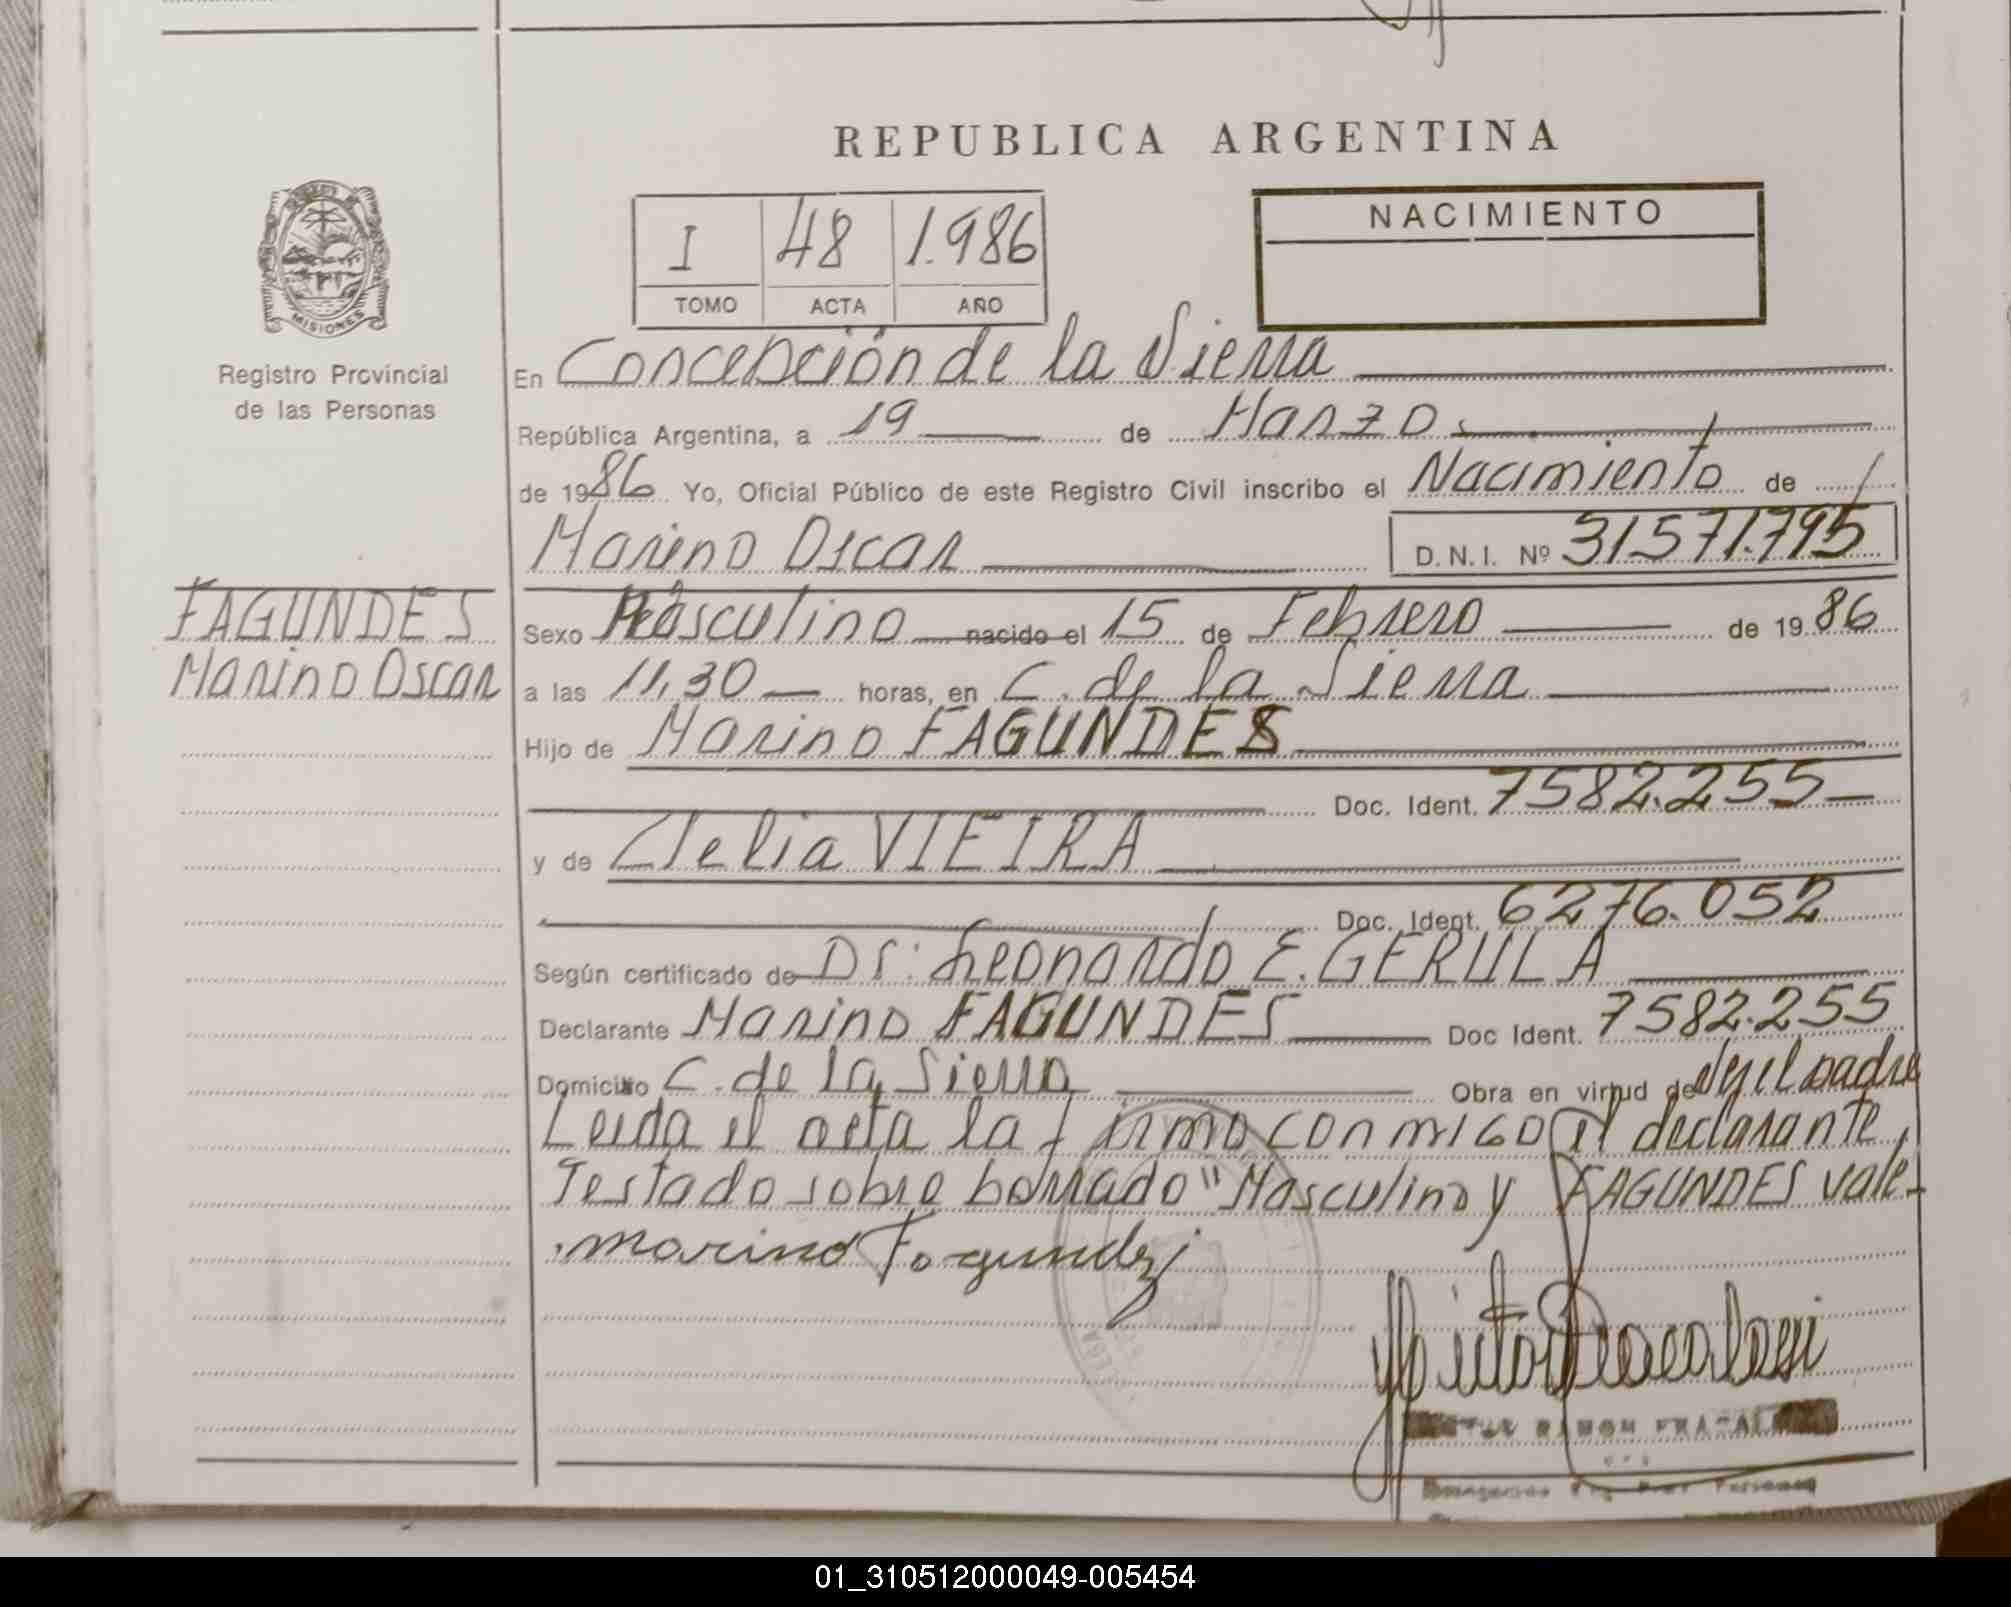 REPUBLICA ARGENTINA
MISIONES
Registro Provincial
de las Personas
I 48 1.986
TOMO ACTA AÑO
NACIMIENTO
En Concepción de la Sierra
República Argentina, a 19 de Marzo
de 1986 Yo, Oficial Público de este Registro Civil inscribo el Nacimiento de
Marino Oscar D.N.I. Nº 31571.795
FAGUNDES
Marino Oscar
Sexo Masculino nacido el 15 de Febrero de 1986
a las 11,30 horas, en C. de la Sierra
Hijo de Marino FAGUNDES
Doc. Ident. 7582.255
y de Clelia VIEIRA
Doc. Ident. 6276.052
Según certificado de Dr: Leonardo E. GERULA
Declarante Marino FAGUNDES Doc Ident. 7582.255
Domicilio C. de la Sierra Obra en virtud de el padre
Leida el acta la firma conmigo el declarante
Testado sobre borrado "Masculino y FAGUNDES vale
Marino Fagundez
RAMON
Personas
01_310512000049-005454